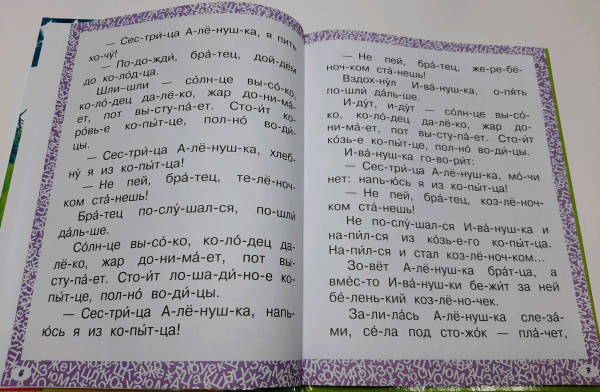 — Сес-три́-ца А-лё-нуш-ка, я пить
хо-чу́!
— По-до-жди́, бра́-тец, дой-дём
до ко-ло́д-ца.
Шли-шли — со́лн-це вы-со́-ко,
ко-ло́-дец да-лё-ко, жар до-ни-ма́-
ет, пот вы-сту-па́-ет. Сто-и́т ко-
ро́вь-е ко-пы́т-це, пол-но́ во-ди́-
цы.
— Сес-три́-ца А-лё-нуш-ка, хлеб-
ну́ я из ко-пы́т-ца!
— Не пей, бра́-тец, те-лё-ноч-
ком ста́-нешь!
Бра́-тец по-слу́-шал-ся, по-шли́
да́ль-ше.
Со́лн-це вы-со́-ко, ко-ло́-дец да-
лё-ко, жар до-ни-ма́-ет, пот вы-
сту-па́-ет. Сто-и́т ло-ша-ди́-но-е ко-
пы́т-це, пол-но́ во-ди́-цы.
— Сес-три́-ца А-лё-нуш-ка, напь-
ю́сь я из ко-пы́т-ца!
6
— Не пей, бра́-тец, же-ре-бё-
ноч-ком ста́-нешь!
Вздох-ну́л И-ва́-нуш-ка, о-пя́ть
по-шли́ да́ль-ше.
И-ду́т, и-ду́т — со́лн-це вы-со́-
ко, ко-ло́-дец да-лё-ко, жар до-
ни-ма́-ет, пот вы-сту-па́-ет. Сто-и́т
ко́зь-е ко-пы́т-це, пол-но́ во-ди́-цы.
И-ва́-нуш-ка го-во-ри́т:
— Сес-три́-ца А-лё-нуш-ка, мо́-чи
нет: напь-ю́сь я из ко-пы́т-ца!
— Не пей, бра́-тец, коз-лё-ноч-
ком ста́-нешь!
Не по-слу́-шал-ся И-ва́-нуш-ка и
на-пи́л-ся из ко́зь-е-го ко-пы́т-ца.
На-пи́л-ся и стал коз-лё-ноч-ком...
Зо-вёт А-лё-нуш-ка бра́т-ца, а
вме́с-то И-ва́-нуш-ки бе-жи́т за ней
бе́-лень-кий коз-лё-но-чек.
За-ли-ла́сь А-лё-нуш-ка сле-за́-
ми, се́-ла под сто-жо́к — пла́-чет,
7